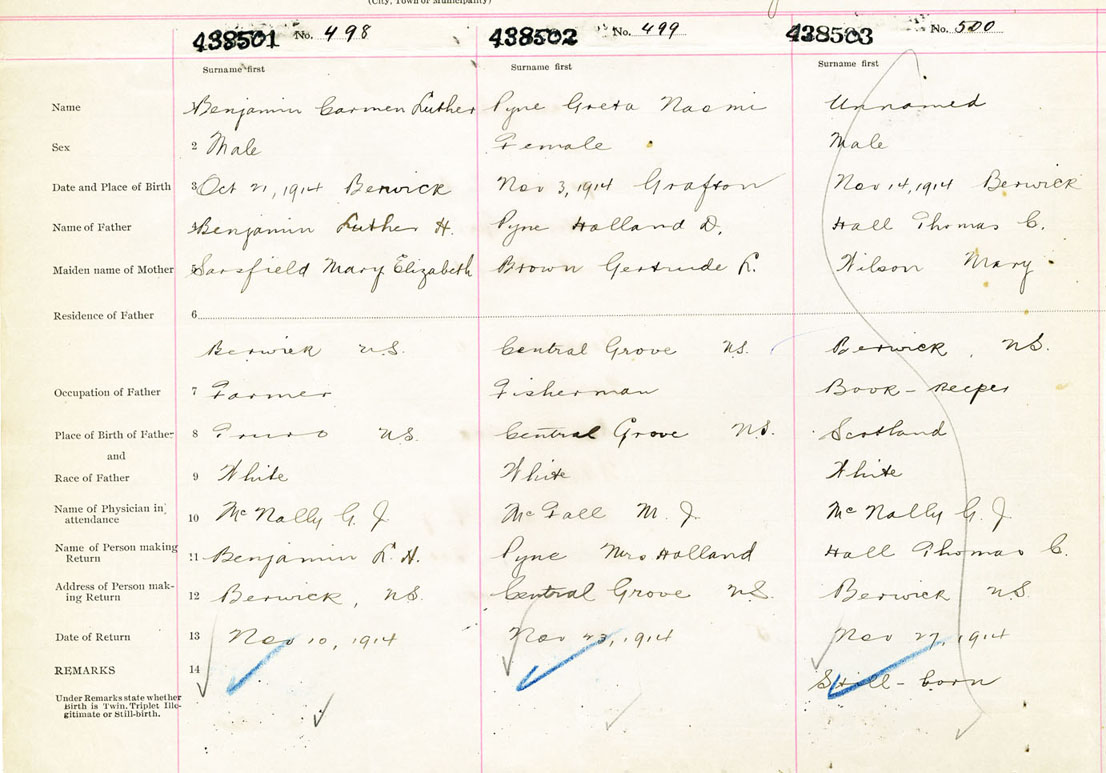 (City, Town or Municipality)
438501 No. 498 438502 No. 499 438503 No. 500
Surname first Surname first Surname first
Name 1 Benjamin Carmen Luther Pyne Greta Naomi Unnamed
Sex 2 Male Female Male
Date and Place of Birth 3 Oct 21, 1914 Berwick Nov 3, 1914 Grafton Nov 14, 1914 Berwick
Name of Father 4 Benjamin Luther H. Pyne Holland D. Hall Thomas C.
Maiden name of Mother 5 Sarsfield Mary Elizabeth Brown Gertrude L. Wilson Mary
Residence of Father 6
Berwick N.S. Central Grove N.S. Berwick, N.S.
Occupation of Father 7 Farmer Fisherman Book-keeper
Place of Birth of Father 8 Truro N.S. Central Grove N.S. Scotland
and
Race of Father 9 White White White
Name of Physician in
attendance 10 McNally G. J. McFall M. J. McNally G. J.
Name of Person making
Return 11 Benjamin L. H. Pyne Mrs Holland Hall Thomas C.
Address of Person mak-
ing Return 12 Berwick, N.S. Central Grove N.S. Berwick N.S.
Date of Return 13 Nov 10, 1914 Nov 23, 1914 Nov 27, 1914
REMARKS 14 Still-born
Under Remarks state whether
Birth is Twin, Triplet Ille-
gitimate or Still-birth.